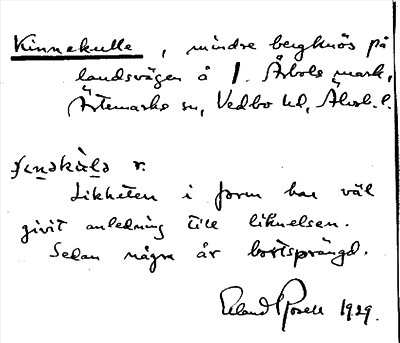 Kinnekulle, mindre bergknös på
landsvägen å 1. Årbols mark,
Ärtemarks sn, Vedbo hd, Älvsb. l.
r.
Likheten i form har väl
givit anledning till liknelsen.
Sedan några år bortsprängd.
Erland Rosell 1929.